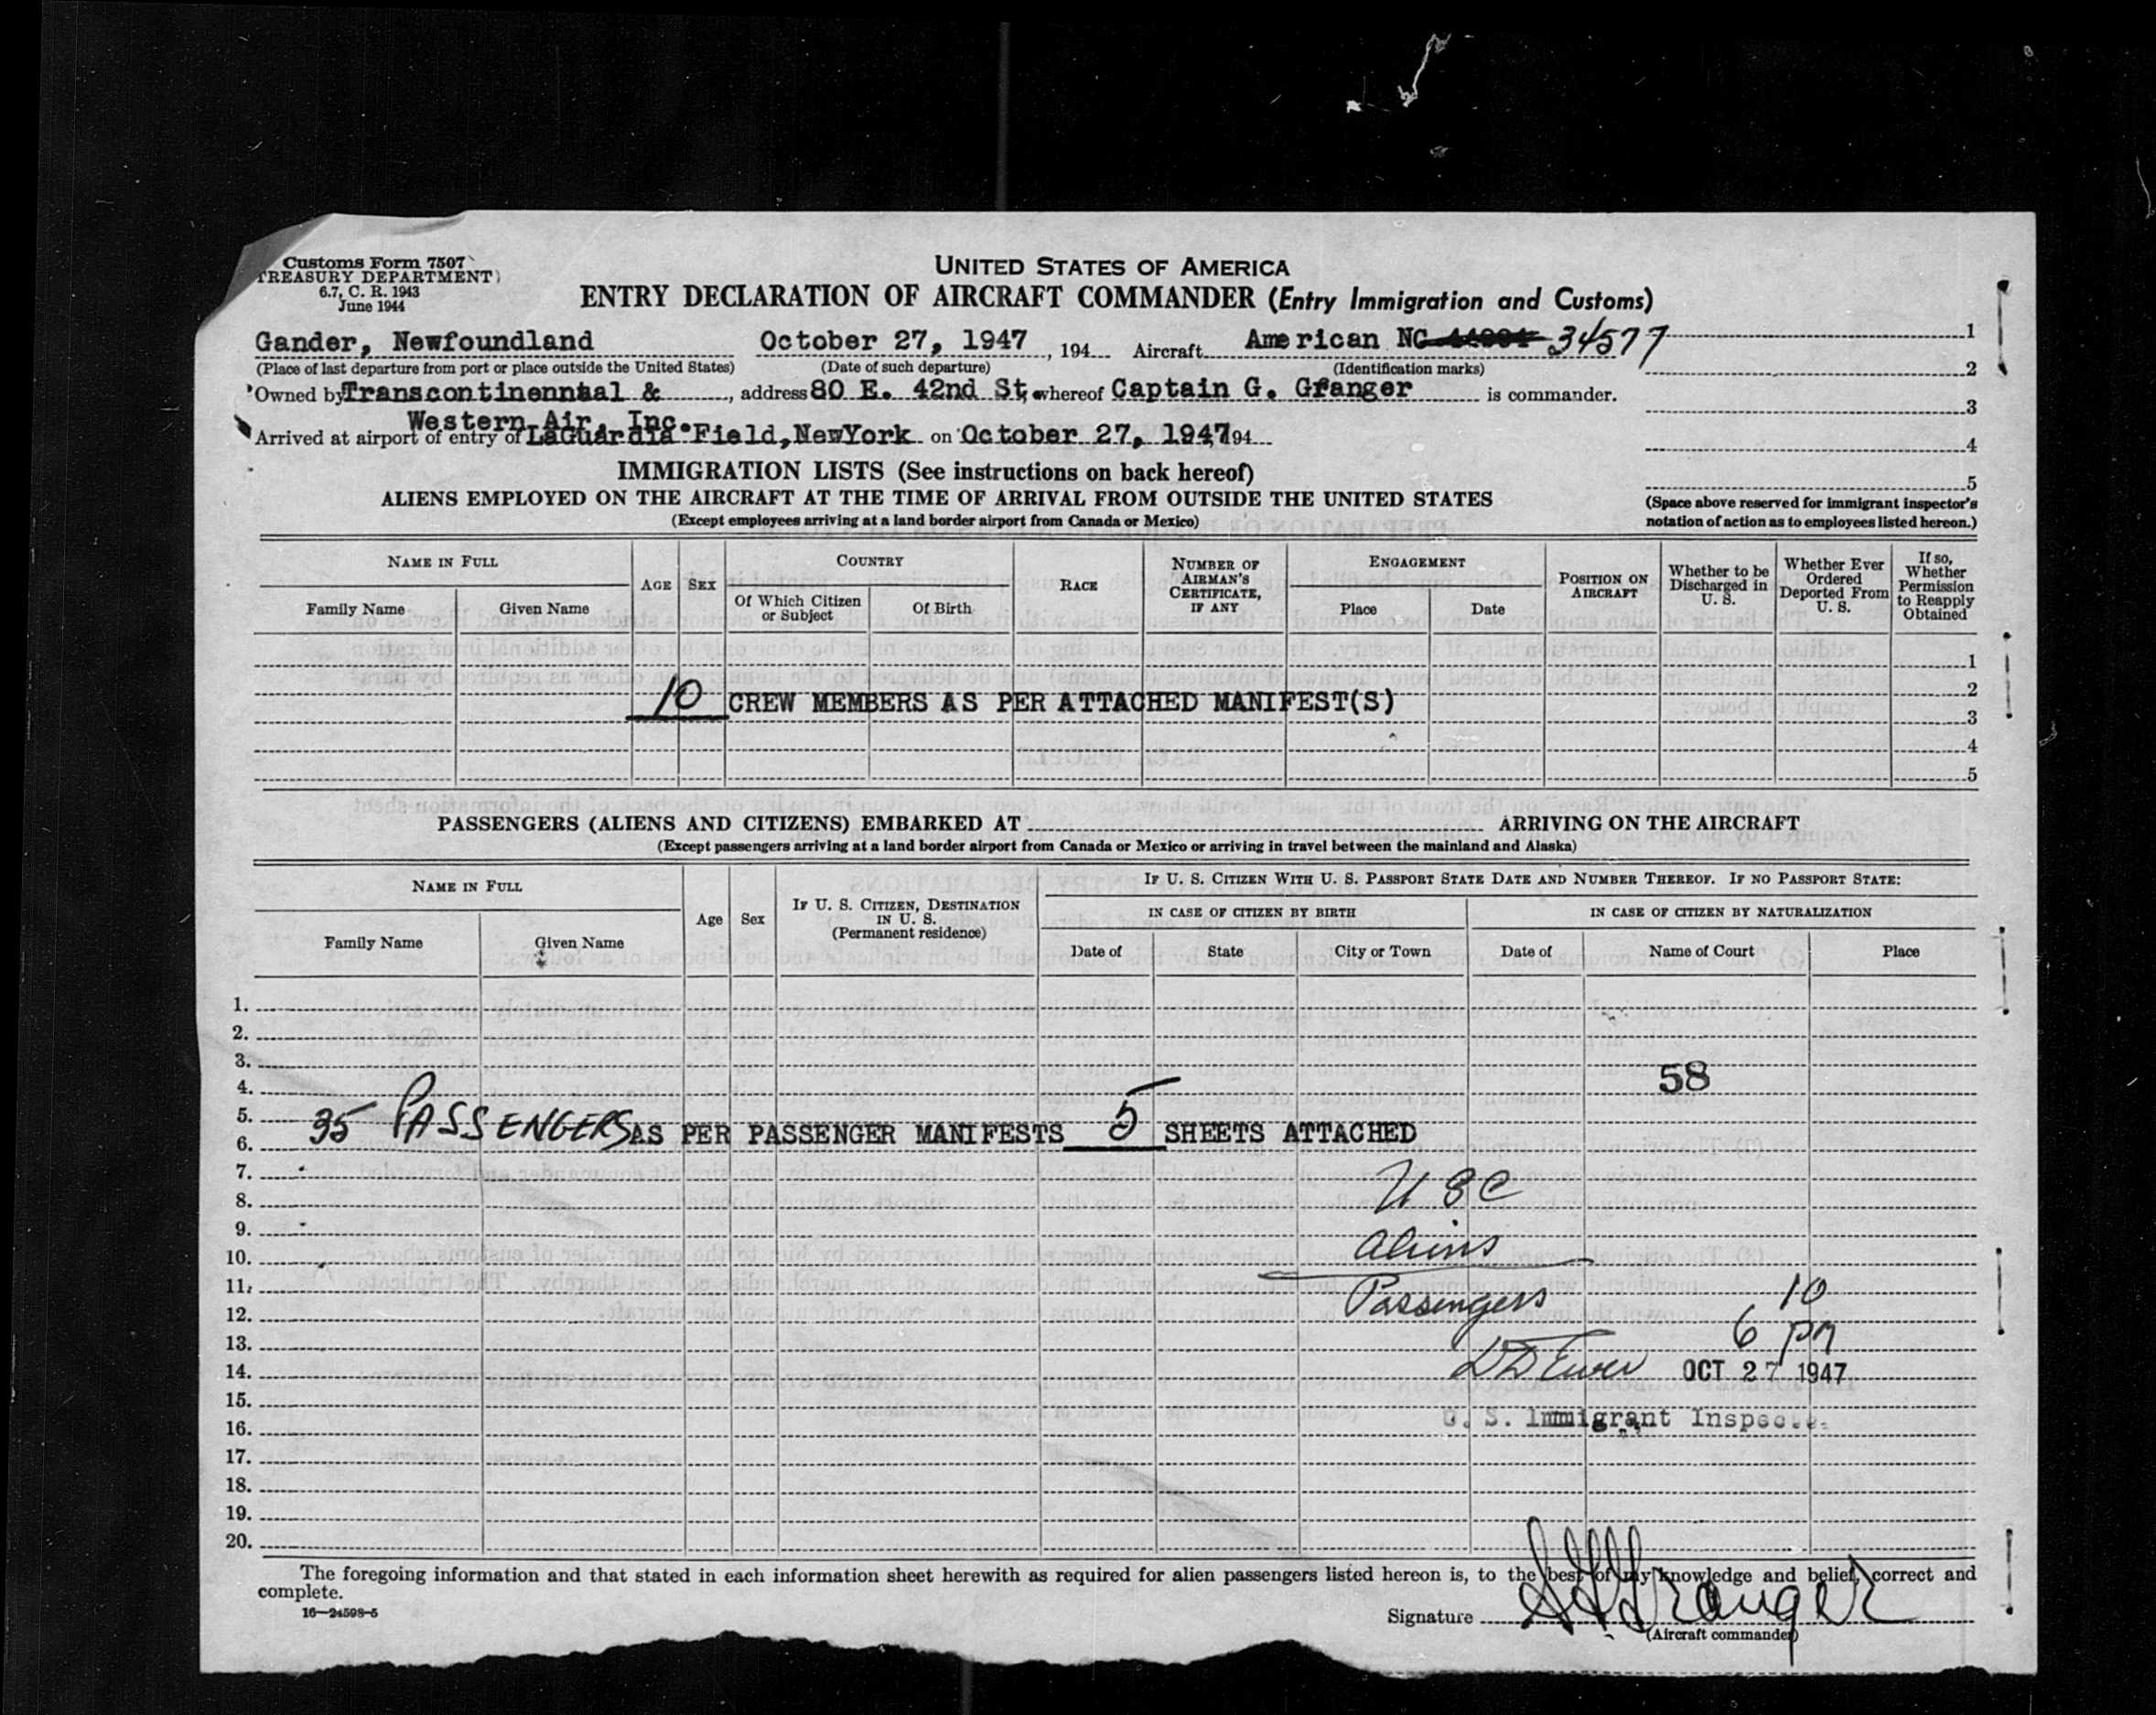 Customs Form 7507
TREASURY DEPARTMENT)
6.7, C. R. 1943
June 1944
UNITED STATES OF AMERICA
ENTRY DECLARATION OF AIRCRAFT COMMANDER (Entry Immigration and Customs)
Gander, Newfoundland October 27, 1947, 194 Aircraft American NC 34577 1
(Place of last departure from port or place outside the United States) (Date of such departure) (Identification marks) 2
Owned by Transcontinenntal & , address 80 E. 42nd St, whereof Captain G. Granger is commander.
3
Western Air, Inc.
Arrived at airport of entry of LaGuardia Field, NewYork on October 27, 1947 194
4
IMMIGRATION LISTS (See instructions on back hereof)
5
ALIENS EMPLOYED ON THE AIRCRAFT AT THE TIME OF ARRIVAL FROM OUTSIDE THE UNITED STATES
(Except employees arriving at a land border airport from Canada or Mexico)
(Space above reserved for immigrant inspector's
notation of action as to employees listed hereon.)
NAME IN FULL
Family Name Given Name
AGE SEX
COUNTRY
Of Which Citizen
or Subject
Of Birth
RACE
NUMBER OF
AIRMAN'S
CERTIFICATE,
IF ANY
ENGAGEMENT
Place Date
POSITION ON
AIRCRAFT
Whether to be
Discharged in
U. S.
Whether Ever
Ordered
Deported From
U. S.
If so,
Whether
Permission
to Reapply
Obtained
1
2
10 CREW MEMBERS AS PER ATTACHED MANIFEST(S)
3
4
5
PASSENGERS (ALIENS AND CITIZENS) EMBARKED AT ARRIVING ON THE AIRCRAFT
(Except passengers arriving at a land border airport from Canada or Mexico or arriving in travel between the mainland and Alaska)
NAME IN FULL
Family Name Given Name
Age Sex
IF U. S. CITIZEN, DESTINATION
IN U. S.
(Permanent residence)
IF U. S. CITIZEN WITH U. S. PASSPORT STATE DATE AND NUMBER THEREOF. IF NO PASSPORT STATE:
IN CASE OF CITIZEN BY BIRTH IN CASE OF CITIZEN BY NATURALIZATION
Date of State City or Town Date of Name of Court Place
1.
2.
3.
4. 58
5.
35 PASSENGERS AS PER PASSENGER MANIFESTS 5 SHEETS ATTACHED
6.
7.
8. USC
9.
10. Aliens
11.
12. Passengers 10
13. 6 PM
14. OCT 27 1947
15.
16. U. S. Immigrant Inspector
17.
18.
19.
20.
The foregoing information and that stated in each information sheet herewith as required for alien passengers listed hereon is, to the best of my knowledge and belief, correct and
complete.
16—24598-5
Signature Granger
(Aircraft commander)